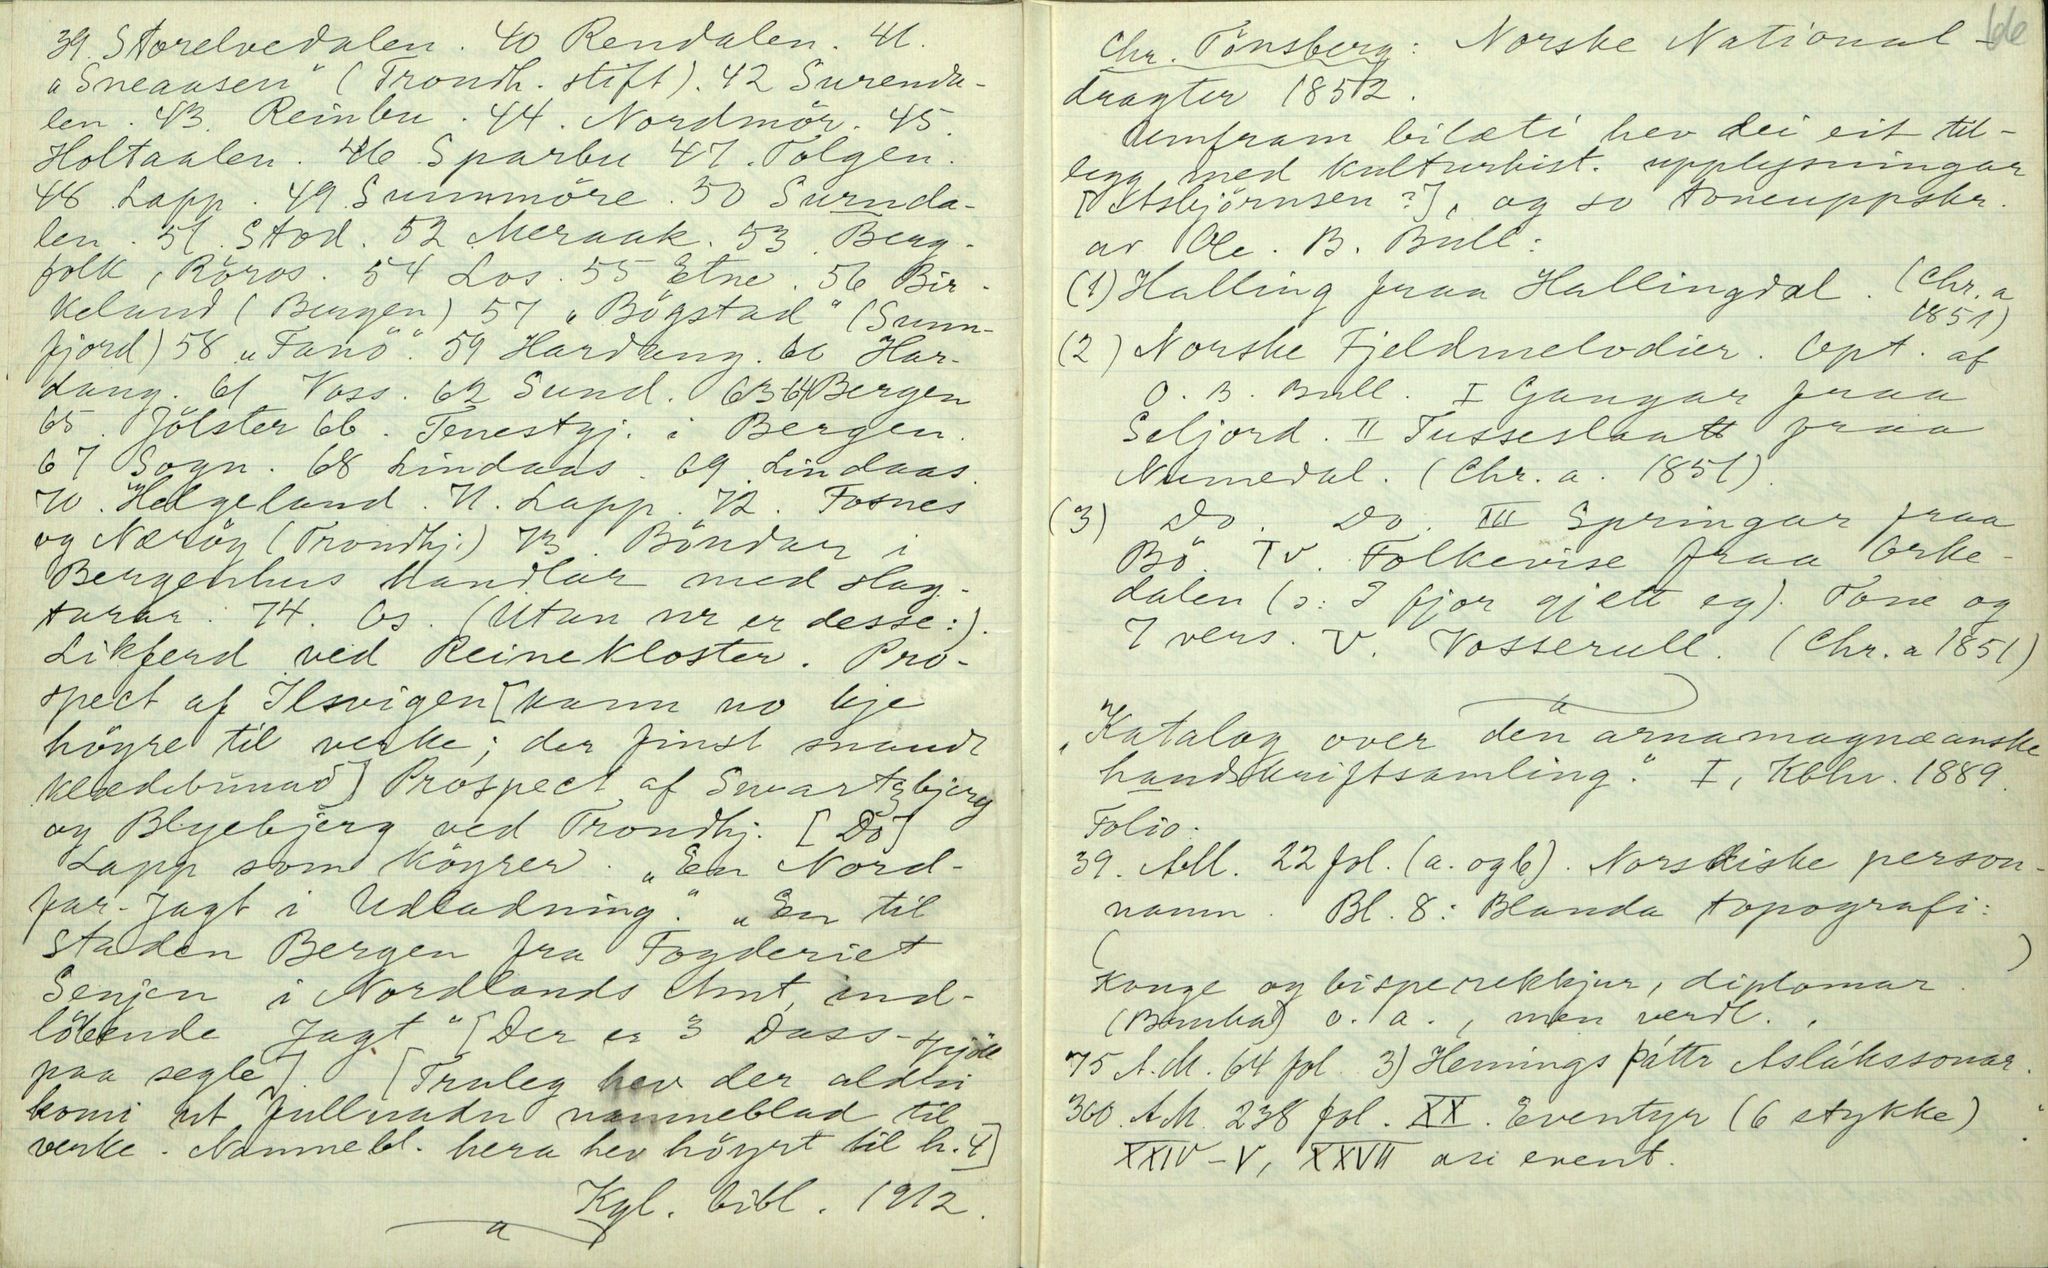 39. Storelvedalen. 40 Rendalen. 41.
"Sneaasen" (Trondh. stift). 42 Surenda-
len. 43. Reinbu. 44. Nordmör. 45.
Holtaalen. 46 Sparbu 47. Tolgen.
48 Lapp. 49 Sunnmöre. 50 Surnda-
len. 51. Stod. 52 Meraak. 53. Berg-
folk, Röros. 54 Los. 55 Etne. 56 Bir-
keland (Bergen) 57 "Bögstad" (Sunn-
fjord) 58 "Fanö". 59 Hardang. 60 Har-
dang. 61 Voss. 62 Sund. 63-64 Bergen
65. Jölster 66. Tenestgj. i Bergen.
67 Sogn. 68 Lindaas. 69. Lindaas.
70. Helgeland. 71. Lapp. 72. Fosnes
og Nærög (Trondhj.) 73. Böndar i
Bergenhus Mandlar med slag-
turar. 74. Os. (Utan nr er desse:).
Likferd ved Reinekloster. Pro-
spect af Ilsvigen [kann no kje
högre til verke; der finst snaudt
klædebunad] Prospect af Svartebjerg
og Blyebjerg ved Trondhj. [Do]
Lapp som köyrer. "En Nord-
far-Jagt i Udladning." "En til
Staden Bergen fra Fogderiet
Senjen i Nordlands Amt, ind-
löbende Jagt" [Der er 3 Dass-spjöll
paa segle]. [Truleg hev der aldri
komi ut fullnadu nanneblad til
verke. Nannebl. hera hev höyrt til h. 4]
Kgl. bibl. 1912.
a
66
Chr. Tönsberg: Norske National-
dragter 1852.
Umfram bilæti hev dei eit til-
legg med kulturhist. upplysningar
[Asbjörnsen?], og so toneuppskr.
av Ole. B. Bull:
(1) Halling fraa Hallingdal. (Chr. a
1851)
(2) Norske Fjeldmelodier. Opt. af
O. B. Bull. I Gangar fraa
Seljord. II Tusseslaatt fraa
Numedal. (Chr. a. 1851).
(3) Do. Do. III Springar fraa
Bö. IV. Folkevise fraa Orke-
dalen (ɔ: I fjor gjætt eg). Tone og
7 vers. V. Vosserull. (Chr. a 1851)
a
"Katalog over den arnamagnæanske
handskriftsamling." I, Kbhv. 1889.
Folio:
39. AM. 22 fol. (a. og b). Norskiske person-
namn. Bl. 8: Blanda topografi:
( )
Konge og bisperekkjur, diplomar.
(Bamba) o. a., men verdl.
75 A. M. 64 fol. 3) Hemings þáttr Aslákssonar.
300. A.M. 238 fol. XX. Eventyr (6 stykke)
XXIV-V, XXVII